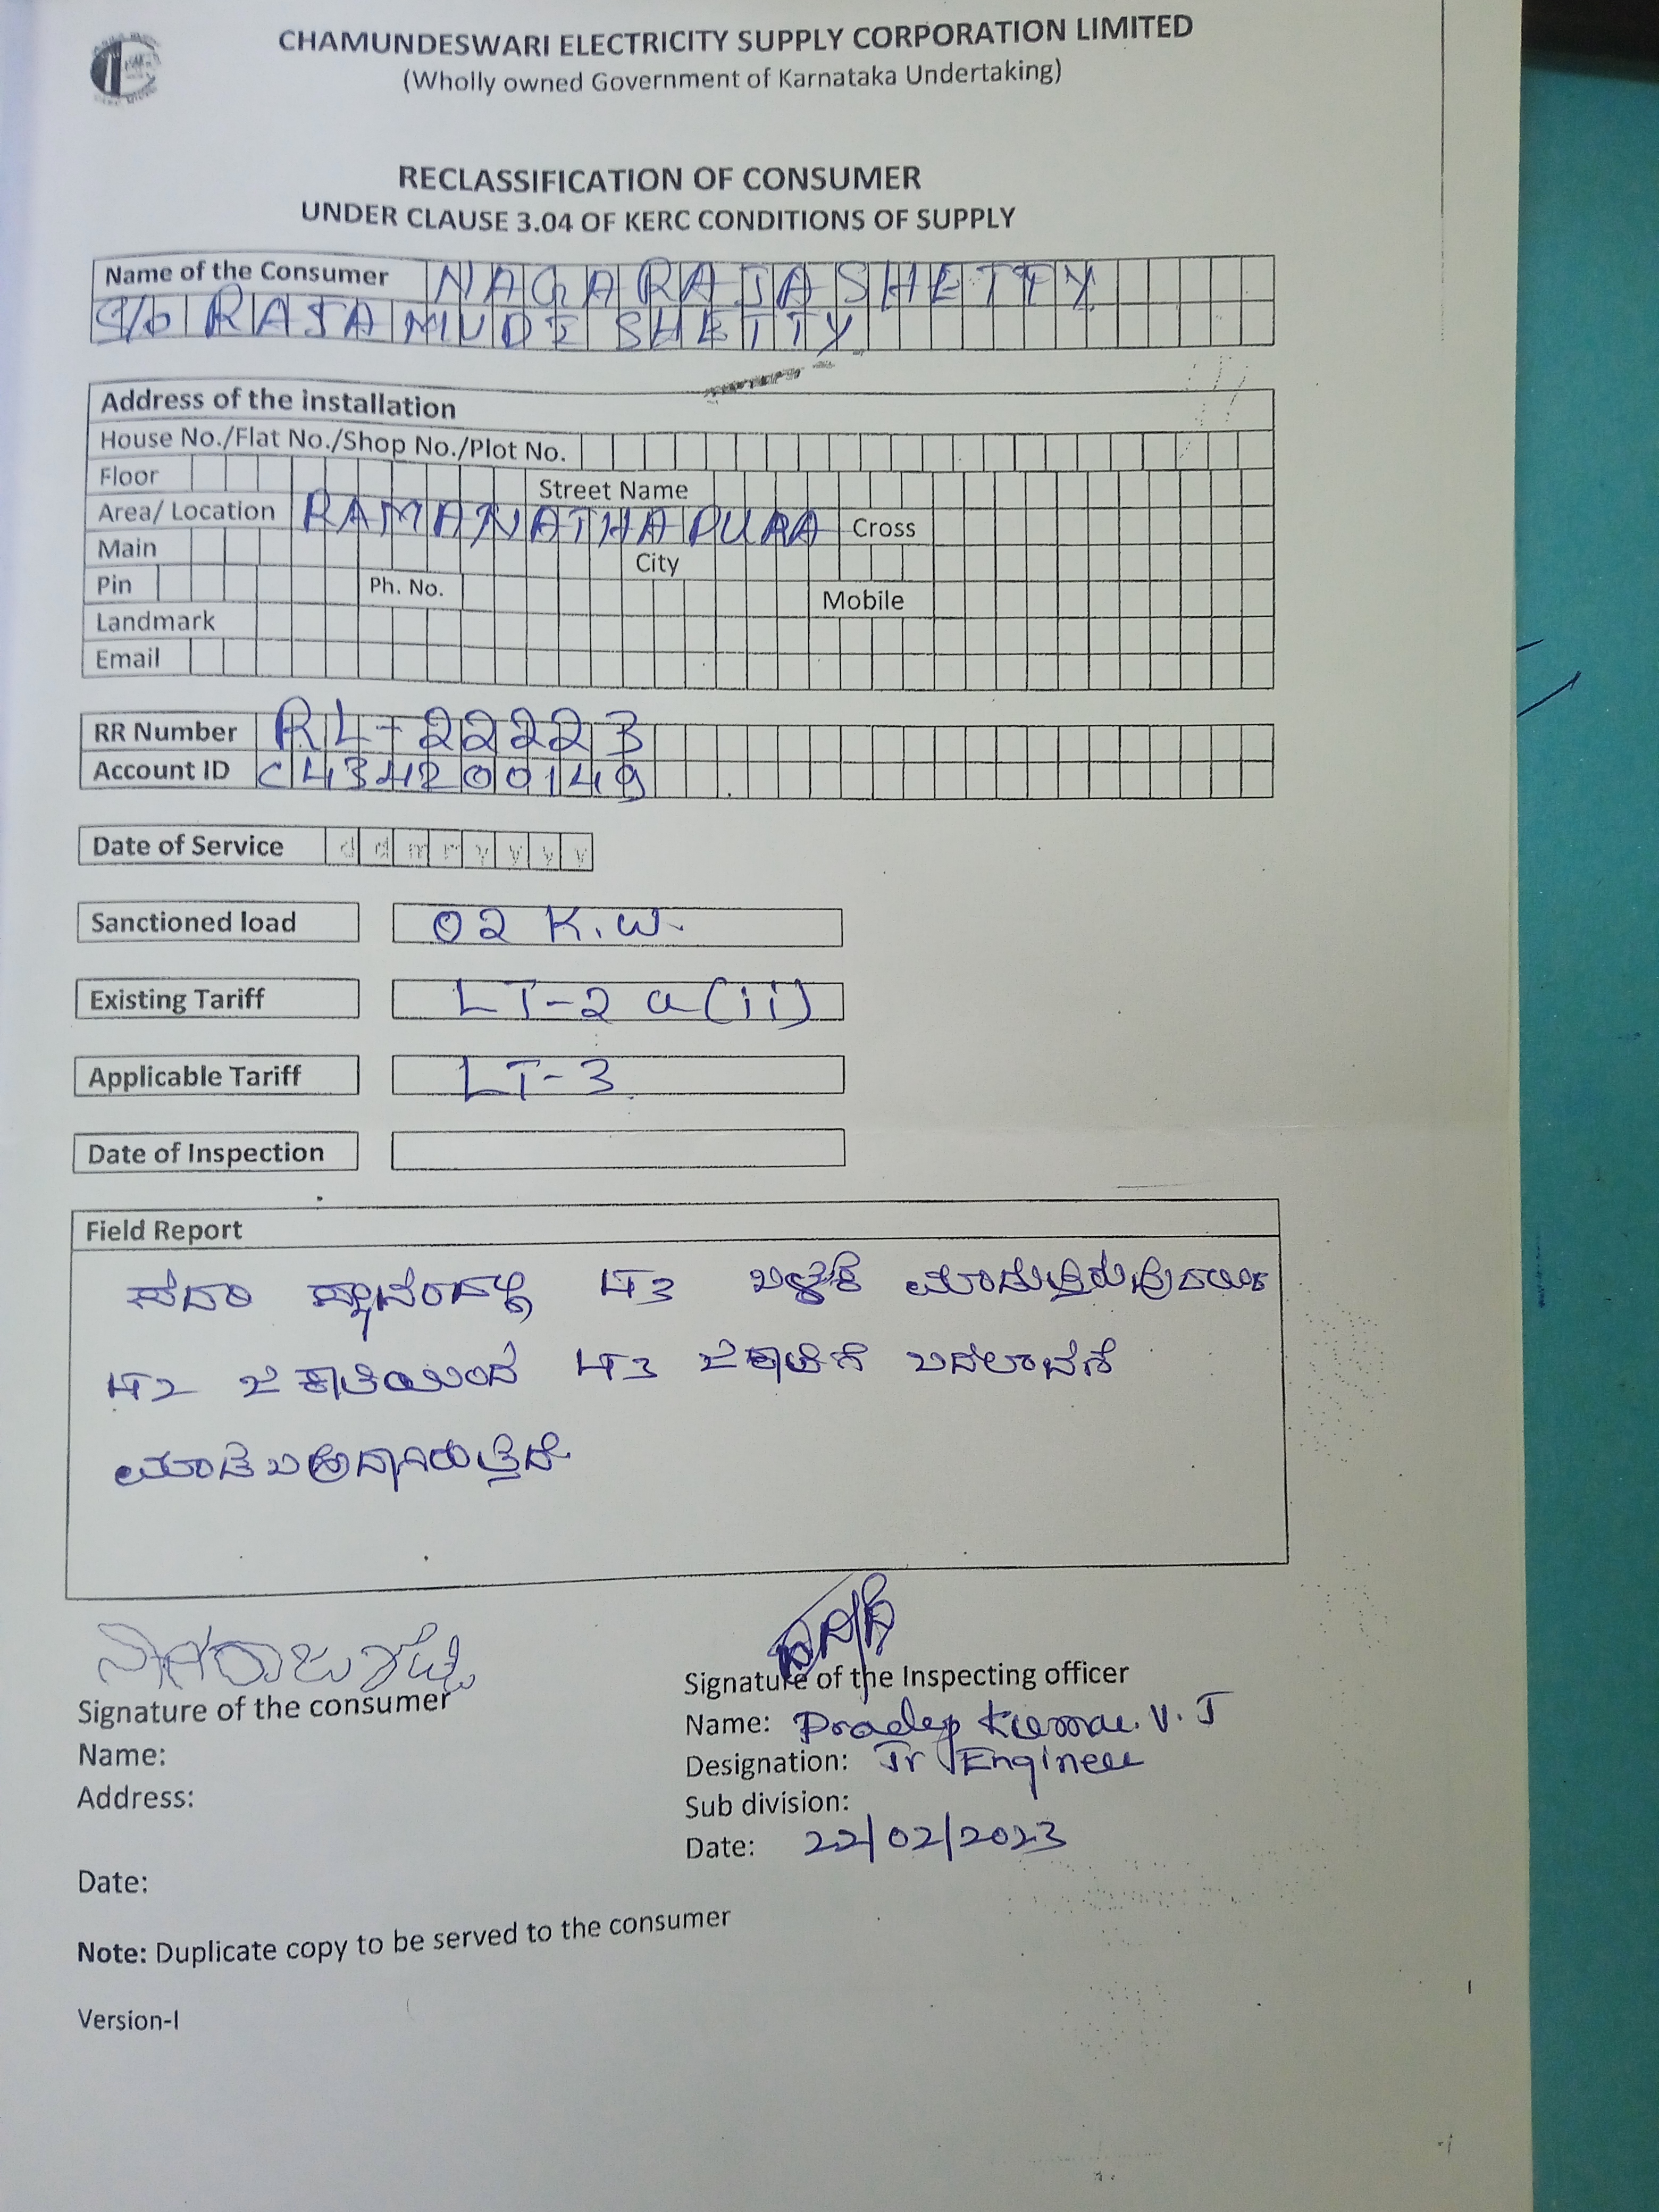 CHAMUNDESWARI ELECTRICITY SUPPLY CORPORATION LIMITED
(Wholly owned Government of Karnataka Undertaking)
RECLASSIFICATION OF CONSUMER
UNDER CLAUSE 3.04 OF KERC CONDITIONS OF SUPPLY
Name of the Consumer NAGARAJA SHETTY
S/o RAJAMUDI SHETTY
Address of the installation
House No./Flat No./Shop No./Plot No.
Floor Street Name
Area/ Location RAMANATHAPURA Cross
Main City
Pin Ph. No. Mobile
Landmark
Email
RR Number RL-22223
Account ID C434200149
Date of Service d d m m y y y y
Sanctioned load 02 K.W.
Existing Tariff LT-2 a(ii)
Applicable Tariff LT-3
Date of Inspection
Field Report
ಸದರಿ ಸ್ಥಾವರದಲ್ಲಿ LT3 ಬಳಕೆ ಮಾಡುತ್ತಿರುವುದರಿಂದ
LT2 ಜಕಾತಿಯಿಂದ LT3 ಜಕಾತಿಗೆ ಬದಲಾವಣೆ
ಮಾಡಬಹುದಾಗಿರುತ್ತದೆ
ನಾಗರಾಜು ಶೆಟ್ಟಿ
Signature of the consumer
Name:
Address:
Date:
Signature of the Inspecting officer
Name: Pradeep Kumar. V. J
Designation: Jr Engineer
Sub division:
Date: 22/02/2023
Note: Duplicate copy to be served to the consumer
Version-I